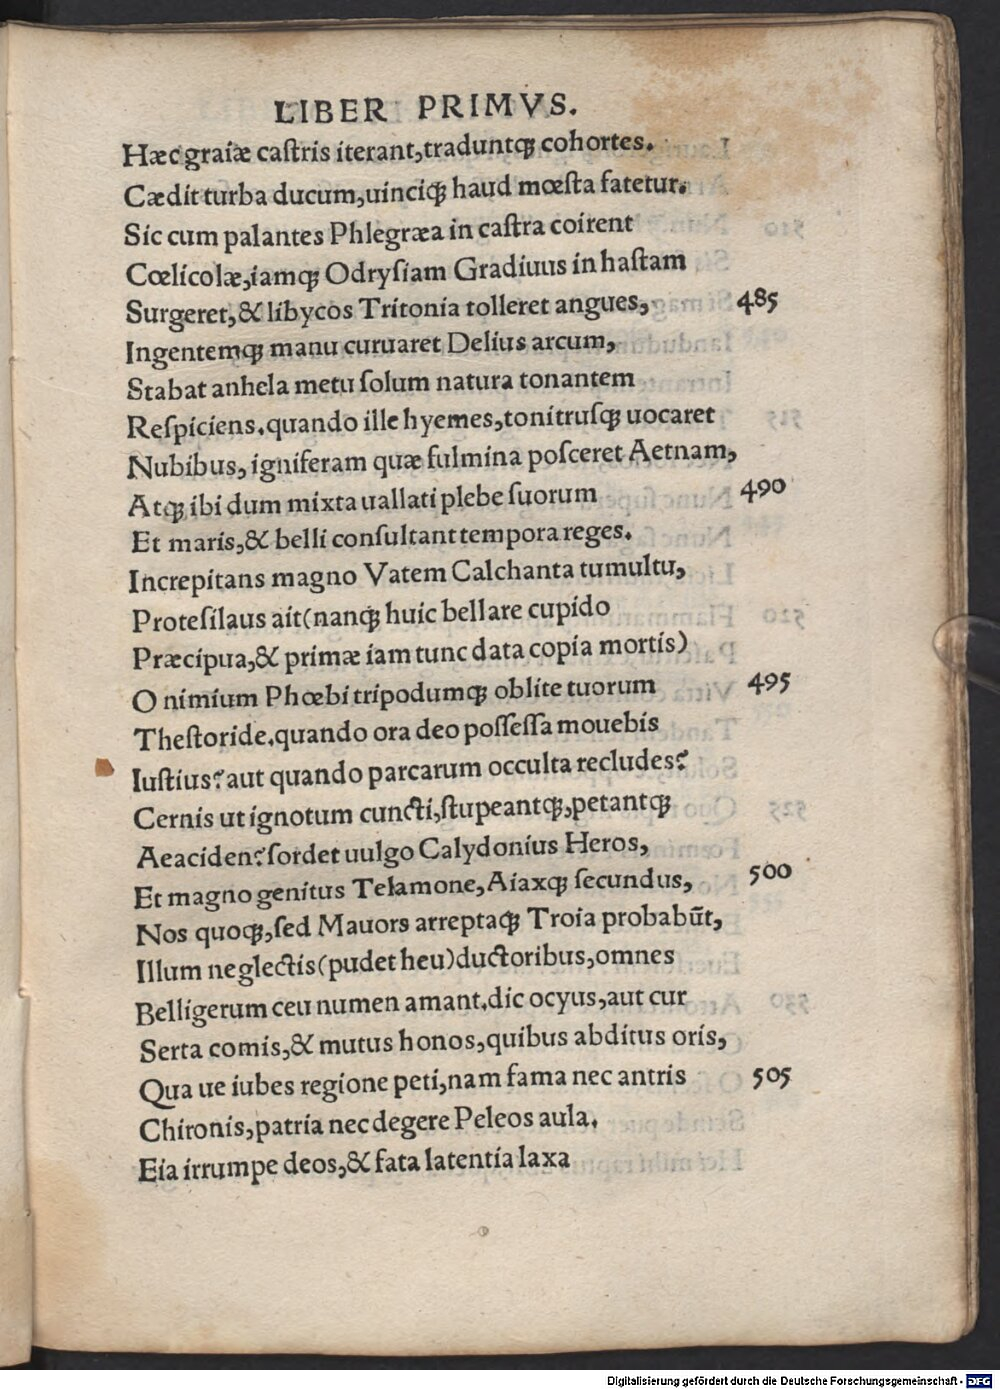 LIBER PRIMVS.
Hæc graiæ castris iterant,traduntq; cohortes.
Cædit turba ducum,uinciq; haud mœsta fatetur.
Sic cum palantes Phlegræa in castra coirent
Cœlicolæ,iamq; Odrysiam Gradiuus in hastam
Surgeret,& libycos Tritonia tolleret angues, 485
Ingentemq; manu curuaret Delius arcum,
Stabat anhela metu solum natura tonantem
Respiciens.quando ille hyemes,tonitrusq; uocaret
Nubibus, igniferam quæ fulmina posceret Aetnam,
Atq; ibi dum mixta uallati plebe suorum 490
Et maris,& belli consultant tempora reges.
Increpitans magno Vatem Calchanta tumultu,
Protesilaus ait(nanq; huic bellare cupido
Præcipua,& primæ iam tunc data copia mortis)
O nimium Phœbi tripodumq; oblite tuorum 495
Thestoride.quando ora deo possessa mouebis
Iustius? aut quando parcarum occulta recludes?
Cernis ut ignotum cuncti,stupeantq;,petantq;
Aeaciden? sordet uulgo Calydonius Heros,
Et magno genitus Telamone,Aiaxq; secundus, 500
Nos quoq;,sed Mauors arreptaq; Troia probabūt,
Illum neglectis(pudet heu)ductoribus,omnes
Belligerum ceu numen amant.dic ocyus,aut cur
Serta comis,& mutus honos,quibus abditus oris,
Qua ue iubes regione peti,nam fama nec antris 505
Chironis,patria nec degere Peleos aula.
Eia irrumpe deos,& fata latentia laxa
Digitalisierung gefördert durch die Deutsche Forschungsgemeinschaft - DFG